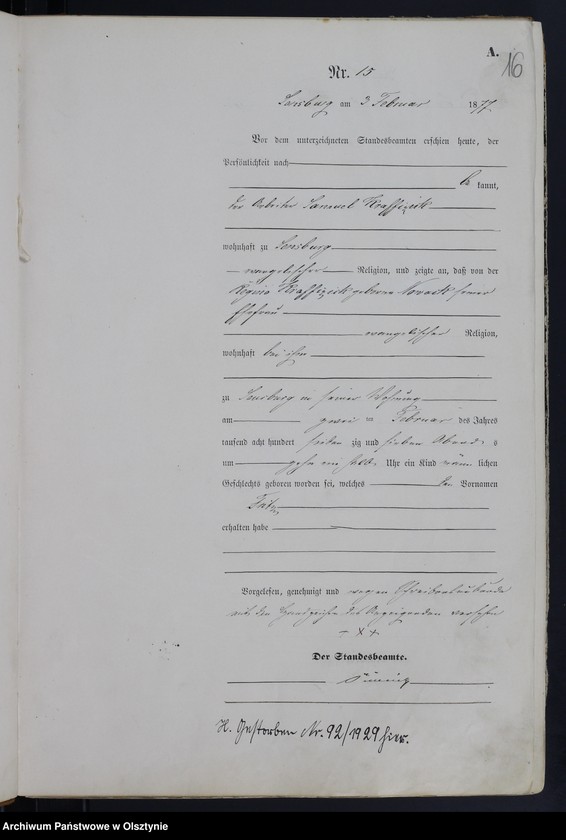 A.
16
Nr. 15
Sensburg am 3 Februar 1877.
Vor dem unterzeichneten Standesbeamten erschien heute, der
Persönlichkeit nach
be kannt,
der Arbeiter Samuel
wohnhaft zu Sensburg
evangelischer Religion, und zeigte an, daß von der
Regina geborne Nowack seiner
Ehefrau
evangelischer Religion,
wohnhaft bei ihm
zu Sensburg in seiner Wohnung
am zwei Februar des Jahres
tausend acht hundert sieben zig und sieben Abends
um zehn ein halb Uhr ein Kind männ lichen
Geschlechts geboren worden sei, welches den Vornamen
Fritz
erhalten habe
Vorgelesen, genehmigt und wegen Schreibensunkunde
mit dem Handzeichen des Anzeigenden versehen
Der Standesbeamte.
H. Gestorben Nr. 92/1929 hier.
Archiwum Państwowe w Olsztynie